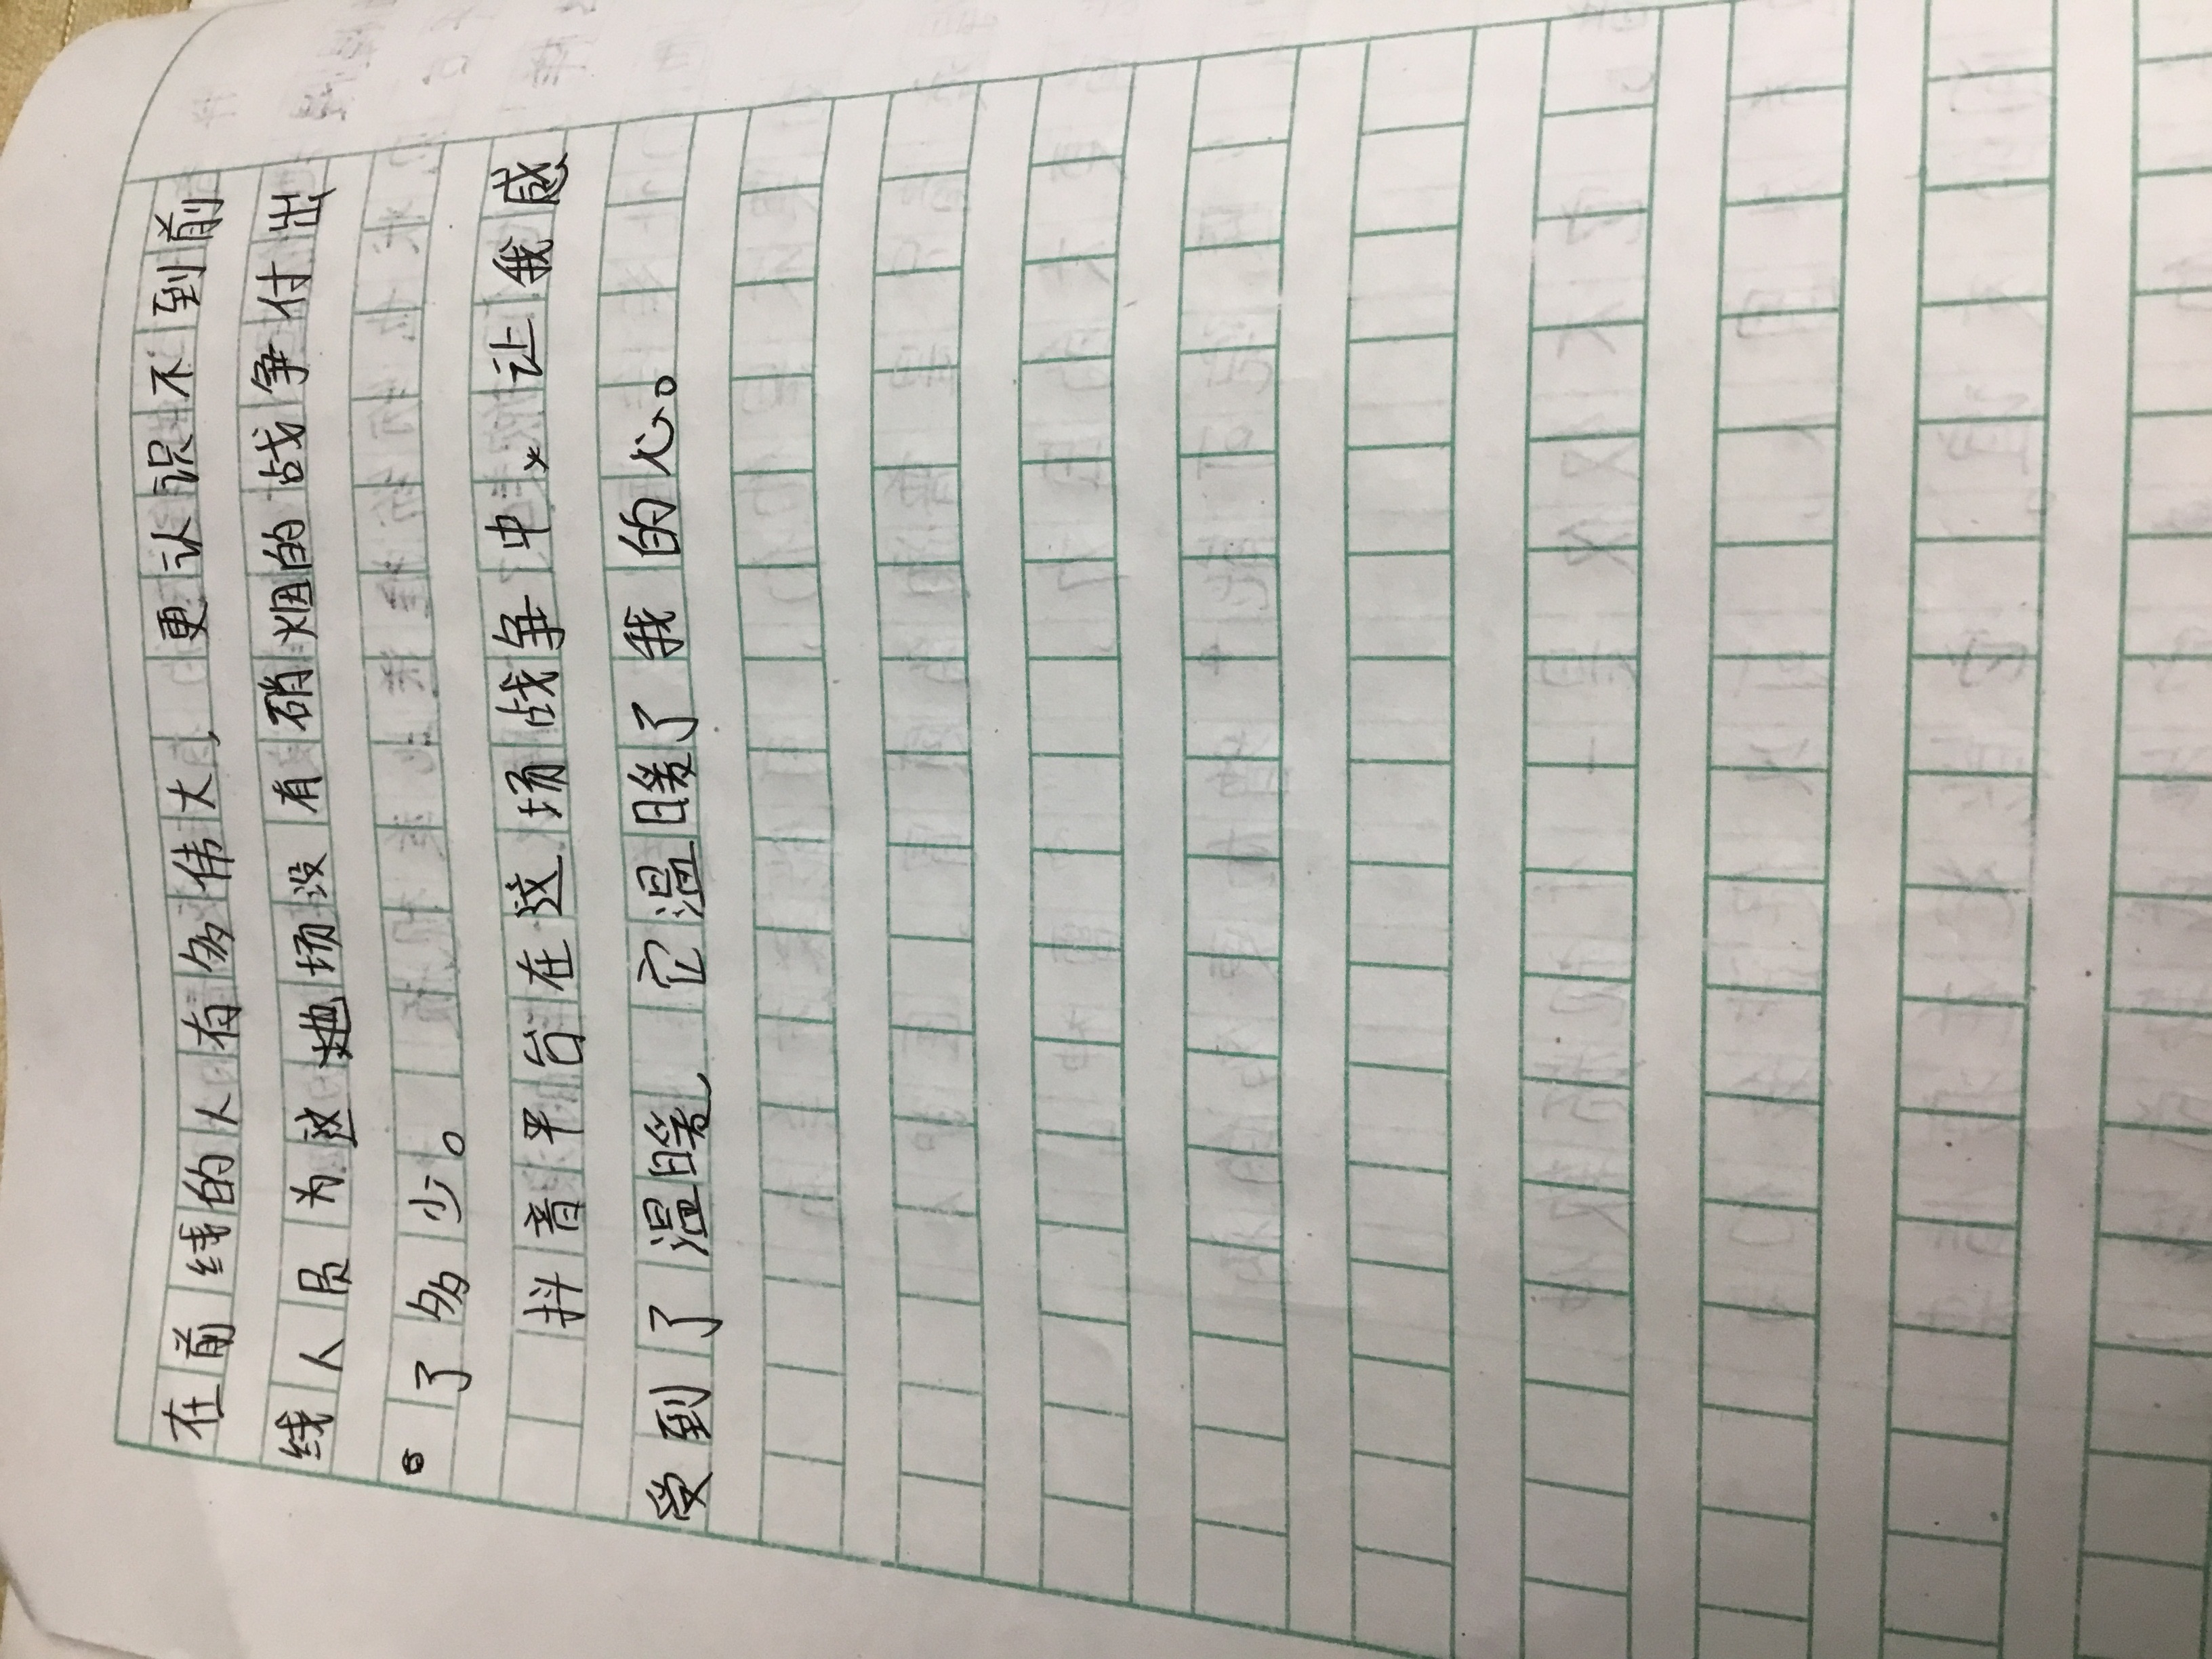 在前线的人有多伟大，更认识不到前
线人员为这地场没有硝烟的战争付出
了多少。
抖音平台在这场战争中，让我感
受到了温暖，它温暖了我的心。